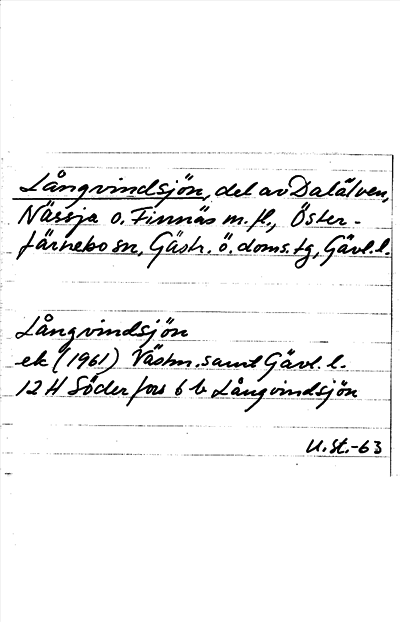 Långvindsjön, del av Dalälven,
Nässja o. Finnäs m. fl., Öster-
färnebo sn, Gästr. ö. doms.tg, Gävl. l.
Långvindsjön
ek (1961) Västm. samt Gävl. l.
12 H Söderfors 6 b Långvindsjön
U. St. -63